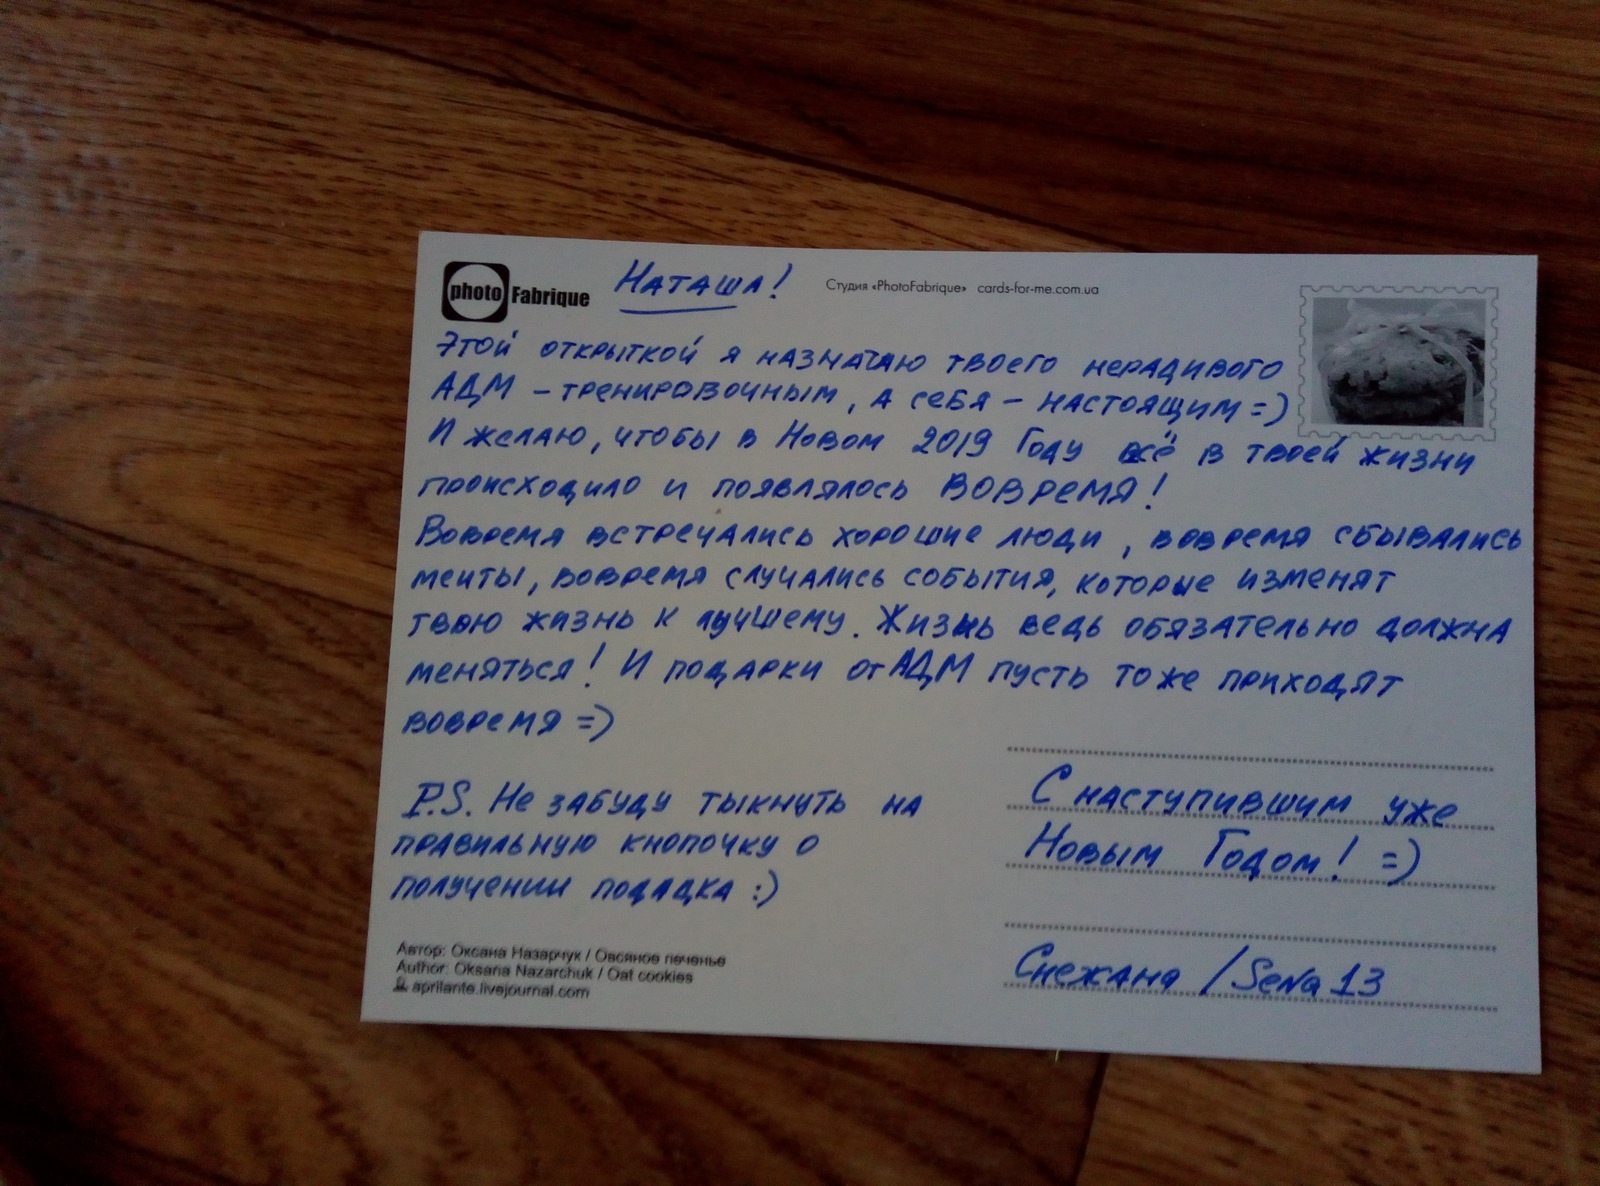 photo Fabrique
Наташа!
Студия «PhotoFabrique» cards-for-me.com.ua
Этой открыткой я назначаю твоего нерадивого
АДМ – тренировочным, а себя – настоящим =)
И желаю, чтобы в Новом 2019 Году всё в твоей жизни
происходило и появлялось ВОВРЕМЯ!
Вовремя встречались хорошие люди, вовремя сбывались
мечты, вовремя случались события, которые изменят
твою жизнь к лучшему. Жизнь ведь обязательно должна
меняться! И подарки от АДМ пусть тоже приходят
вовремя =)
P.S. Не забуду тыкнуть на
правильную кнопочку о
получении подадка :)
С наступившим уже
Новым Годом! =)
Снежана / SeNa 13
Автор: Оксана Назарчук / Овсяное печенье
Author: Oksana Nazarchuk / Oat cookies
aprilante.livejournal.com